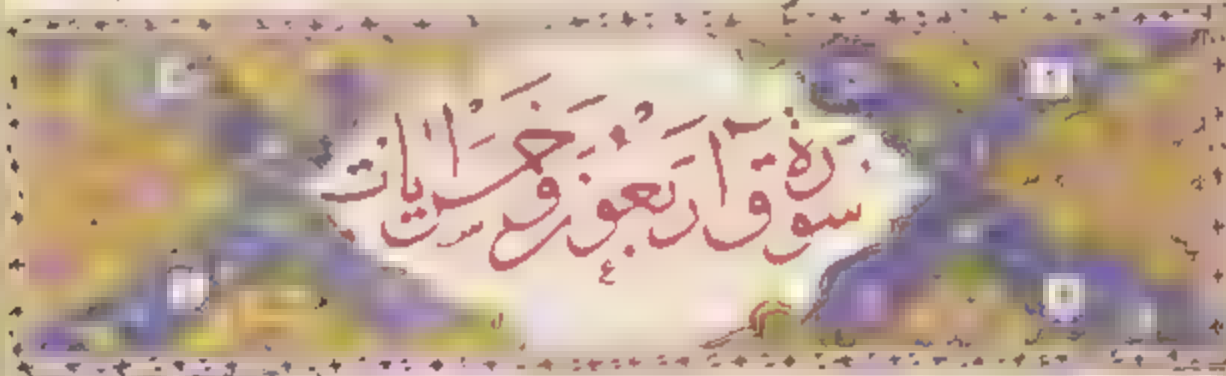 سورة ق اربعون وخمس ايات